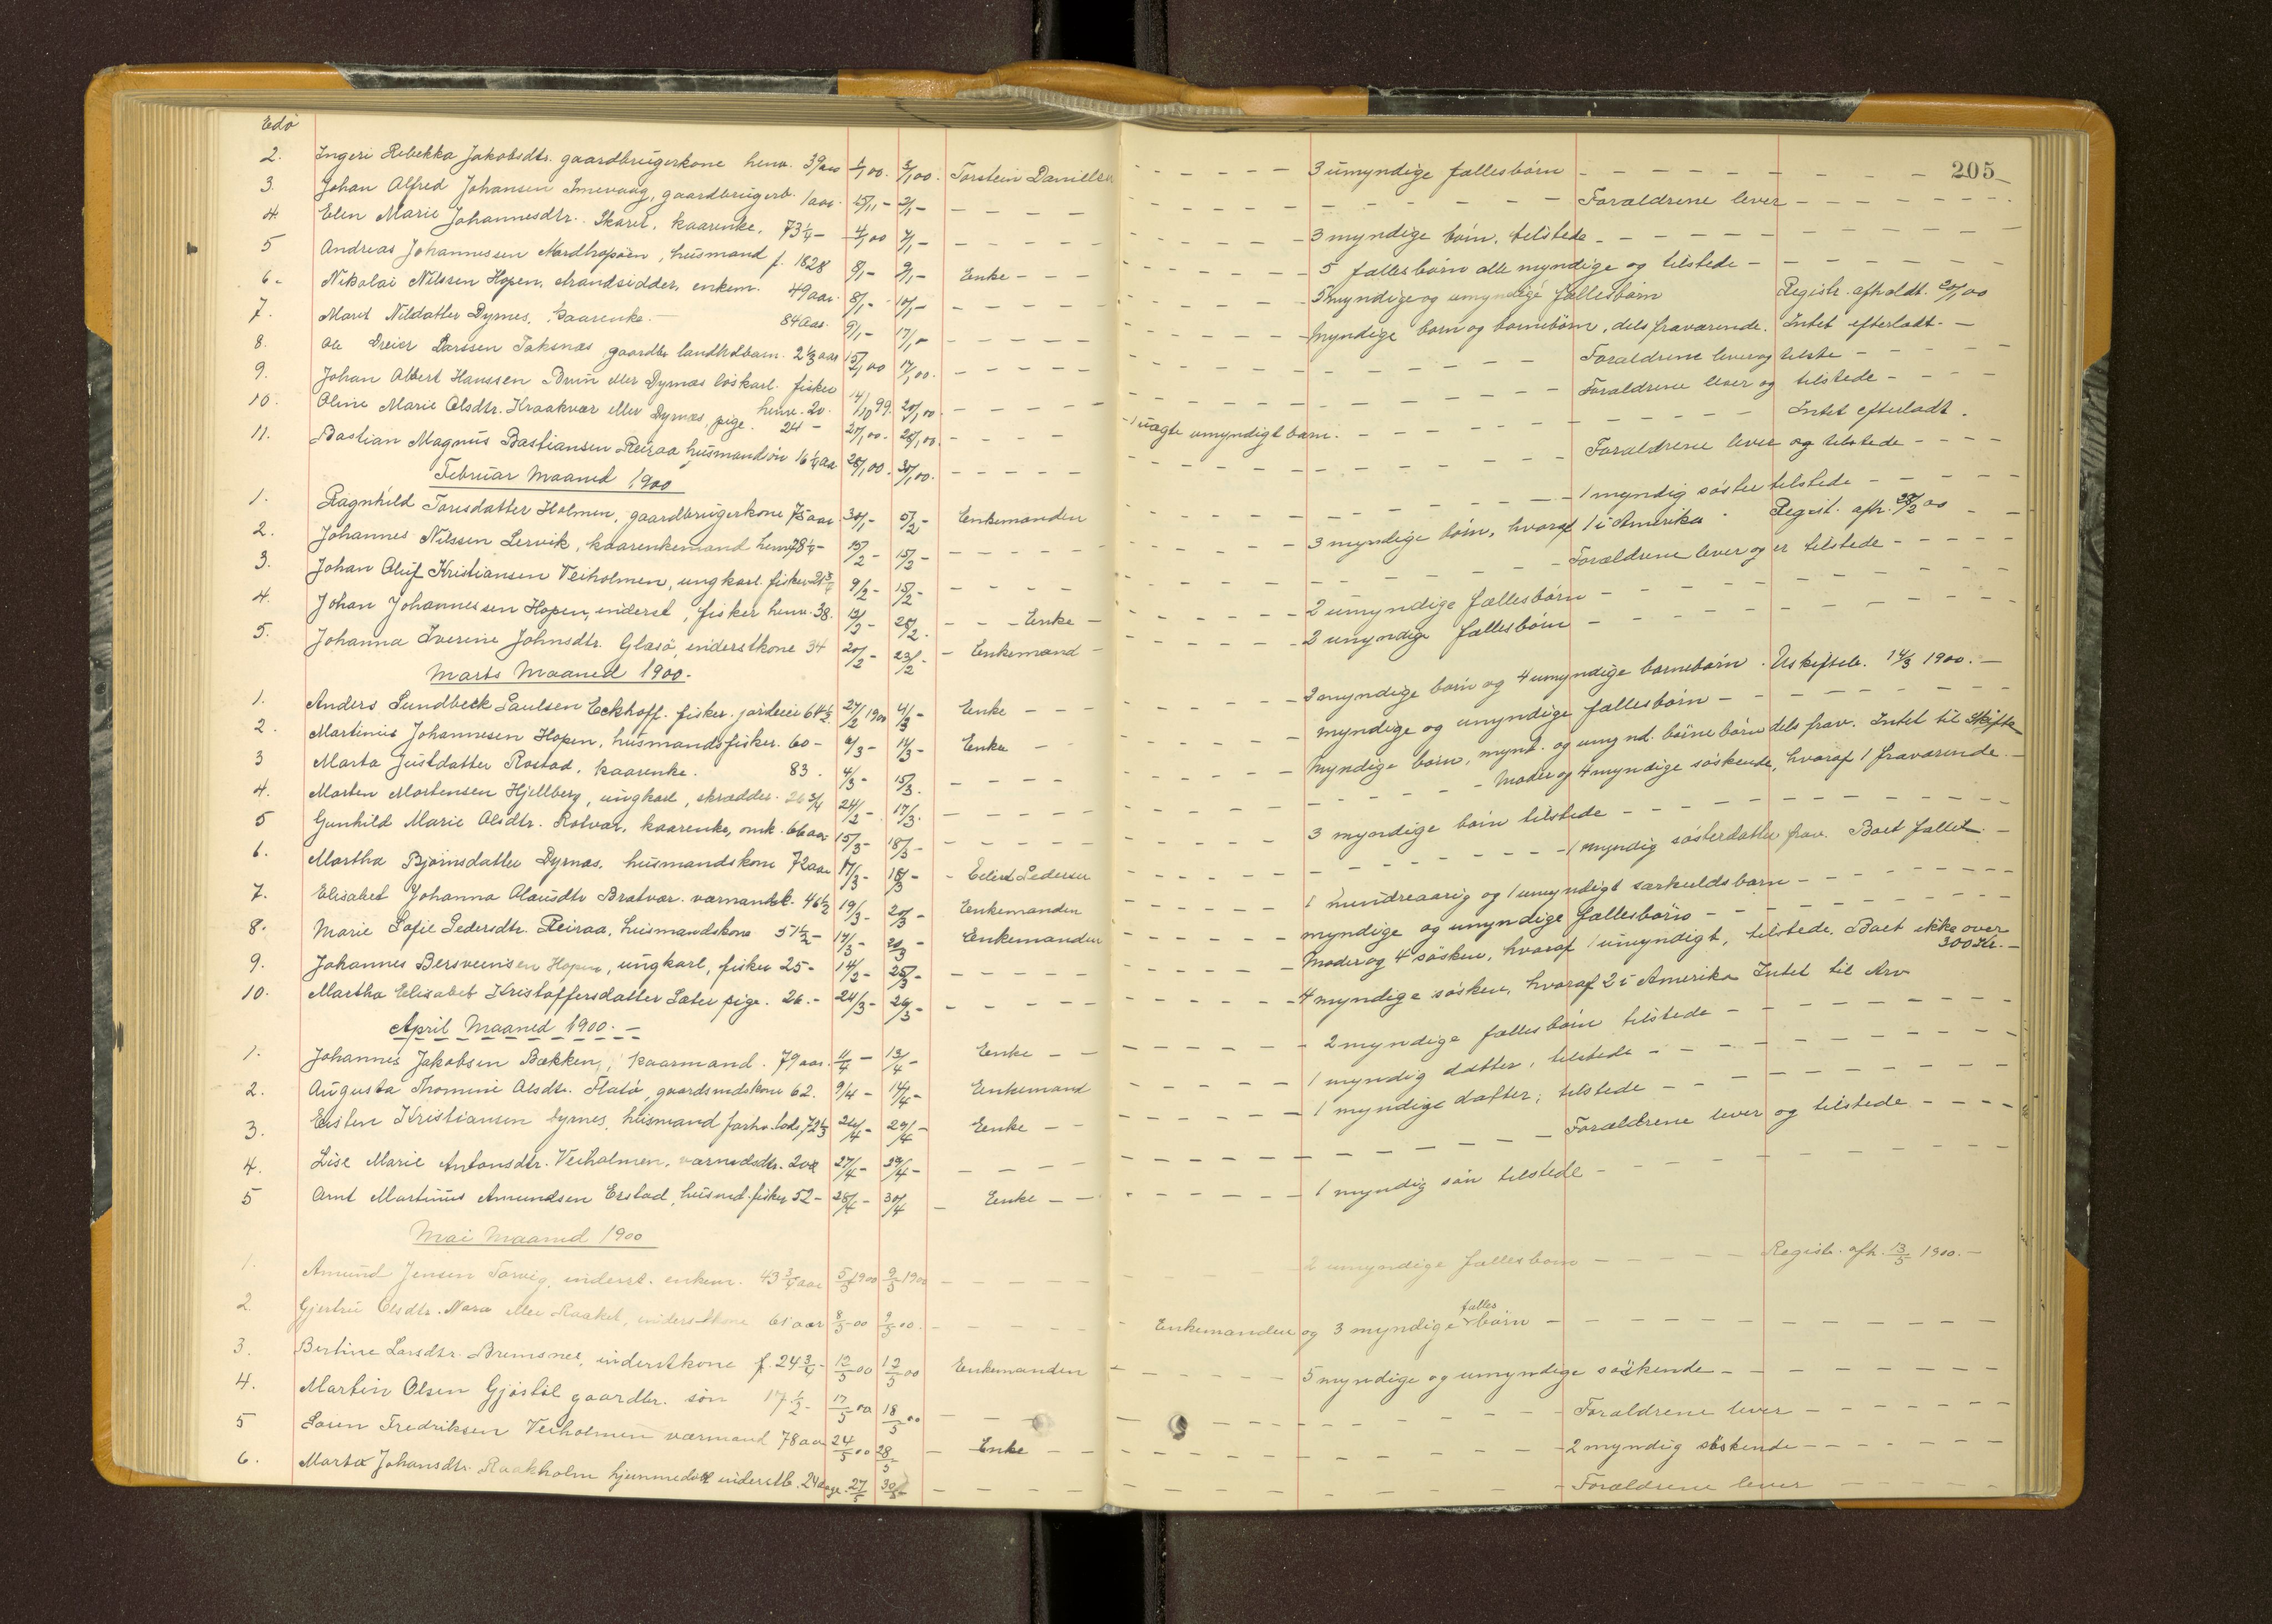 Edø
205
2. Ingeri Rebekka Jakobsdtr. gaardbrugerkone henv. 39 aar 1/1 00. 3/1 00. Torstein Danielsen - - - 3 umyndige fællesbörn - - -
3. Johan Alfred Johansen Imevaag, gaardbrugerb. 1 aar. 15/11 - 2/1 - - - - Forældrene lever - - -
4. Elen Marie Johannesdtr. Skaret, kaarenke, 73 1/4 - 4/1 00 7/1 - - - - 3 myndige börn, tilstede - - -
5 Andreas Johannessen Nordhopöen, husmand f. 1828 8/1 - 9/1 - Enke - - - 5 fællesbörn alle myndige og tilstede - - -
6. Nikolai Nilssen Hopen, strandsidder, enkem. 49 aar. 8/1 - 10/1 - - - - 5 myndige og umyndige fællesbörn Registr. afholdt. 20/1 00
7. Maret Nilsdatter Dyrnes, kaarenke - 84 aar. 9/1 - 17/1 - - - - Myndige börn og börnebörn, dels fraværende. Intet efterladt. -
8. Ole Dreier Larssen Taknæs, gaardbr. landh. barn. 2 1/3 aar 15/1 00 17/1 00. - - - Forældrene lever og tilste - - -
9. Johan Albert Hanssen Bruin eller Dyrnæs löskarl. fisker henv. 20. 14/10 99. 20/1 00. - - - Forældrene lever og tilstede - - -
10. Oline Marie Olsdtr. Kraakvær eller Dyrnæs, pige. 24 - 20/1 00. 25/1 00. - - - 1 uægte umyndigt barn. - - - Intet efterladt.
11. Bastian Magnus Bastiansen Reiraa husmandsön 16 1/4 aar 28/1 00. 30/1 00. - - - Forældrene lever og tilstede - - -
Februar Maaned 1900
1. Ragnhild Toresdatter Holmen, gaardbrugerkone 75 aar 30/1 - 5/2 - Enkemanden - - - 1 myndig söster tilstede - - -
2. Johannes Nilssen Lervik, kaarenkemand henv. 78 1/4 - 15/2 - 15/2 - - - - 3 myndige börn, hvoraf 1 i Amerika - Regist. afh. 28/2 00 -
3. Johan Oluf Kristiansen Veiholmen, ungkarl. fisker 21 3/4 9/2 - 15/2 - - - - Forældrene lever og er tilstede - - -
4. Johan Johannessen Hopen, inderst, fisker henv. 38. 12/2 - 20/2. - - Enke - - - 2 umyndige fællesbörn - - -
5. Johanna Iverine Johnsdtr. Glasö, inderstkone 34 20/2 - 23/2 - - Enkemand - - - 2 umyndige fællesbörn - - -
Marts Maaned 1900.
1. Anders Lundbeck Paulsen Eckhoff. fisker. jordeier 64 1/2. 27/2 1900 4/3 - Enke - - - 2 myndige börn og 4 umyndige börnebörn. Uskifteb. 14/3 1900. -
2. Martinus Johannesen Hopen, husmandsfisker. 60 - 6/3 - 14/3 - Enke - - - myndige og umyndige fællesbörn - - -
3 Marta Justdatter Rostad, kaarenke. 83. 4/3 - 15/3. - - - Myndige börn, mynd. og umynd. börnebörn dels frav. Intet til Skifte
4. Morten Mortensen Hjellberg, ungkarl, skrædder. 26 3/4 24/2 - 17/3. - - - Moder og 4 myndige söskende, hvoraf 1 fraværende -
5 Gunhild Marie Olsdtr. Rotvær, kaarenke, omk. 66 aar 15/3 - 18/3 - - - - 3 myndige börn tilstede - - -
6. Martha Björnsdatter Dyrnæs, husmandskone 72 aar 17/3 - 18/3 - - Eilert Pedersen - - - 1 myndig sösterdatter frav. Boet fallit. -
7. Elisabet Johanna Olausdtr. Brætvær. værmandsk. 46 1/2 19/3 - 20/3 - Enkemanden - - - 1 hundreaarig og 1 umyndigt særkuldsbarn - - -
8. Marie Sofie Pedersdtr. Reiraa, husmandskone 57 1/2 - 17/3 - 20/3 - Enkemanden - - - myndige og umyndige fællesbörn - - -
9. Johannes Bersvensen Hopen, ungkarl, fisker 25 - 14/3 - 25/3 - - - - Moder og 4 sösken, hvoraf 1 umyndigt, tilstede. Boet ikke over 300 Kr. -
10. Martha Elisabet Kristoffersdatter Sæter pige. 26. - 24/3 - 26/3 - - - - 4 myndige sösken, hvoraf 2 i Amerika Intet til Arv
April Maaned 1900. -
1. Johannes Jakobsen Bækken, kaarmand. 79 aar. 11/4 - 13/4 - Enke - - - 2 myndige fællesbörn tilstede - - -
2. Augusta Thomine Olsdtr. Flatö, gaardmdskone 62. 9/4 - 14/4 - Enkemand - - - 1 myndig datter, tilstede - - -
3. Eisten Kristiansen Dyrnes, husmand forhv. lods, 72 1/3 26/4 - 29/4 - Enke - - - 1 myndige datter, tilstede - - -
4. Lise Marie Antonsdtr. Veiholmen, værmdsdtr. 20 27/4 - 29/4 - - - - Forældrene lever og tilstede - - -
5 Arnt Martinus Amundsen Erstad, husmd. fisker 52 - 28/4 - 30/4 - Enke - - - 1 myndig sön tilstede - - -
Mai Maaned 1900
1. Amund Jensen Torvig, inderst. enkem. 43 3/4 aar 5/5 1900 9/5 1900 - - - 2 umyndige fællesbörn - - - Registr. afh. 13/5 1900. -
2. Gjertru Olsdtr. Nara eller Raaket, inderstkone 61 aar 8/5 00 9/5 00. - - - Enkemanden og 3 myndige fælles börn - - -
3. Bertine Larsdtr. Bremsnes, inderstkone f. 24 3/4 - 12/5 00 12/5 00 Enkemanden - - - 5 myndige og umyndige söskende - - -
4. Martin Olsen Gjöstöl gaardbr. sön 17 1/2 - 17/5 00 18/5 00 - - - Forældrene lever - - -
5 Søren Fredriksen Veiholmen værmand 78 aar 24/5 00 28/5 - Enke - - - 2 myndig söskende - - -
6. Marta Johansdtr. Raakholm hjemmedøbt inderstb. 24 dage. 27/5 30/5 - - - - Forældrene lever - - -